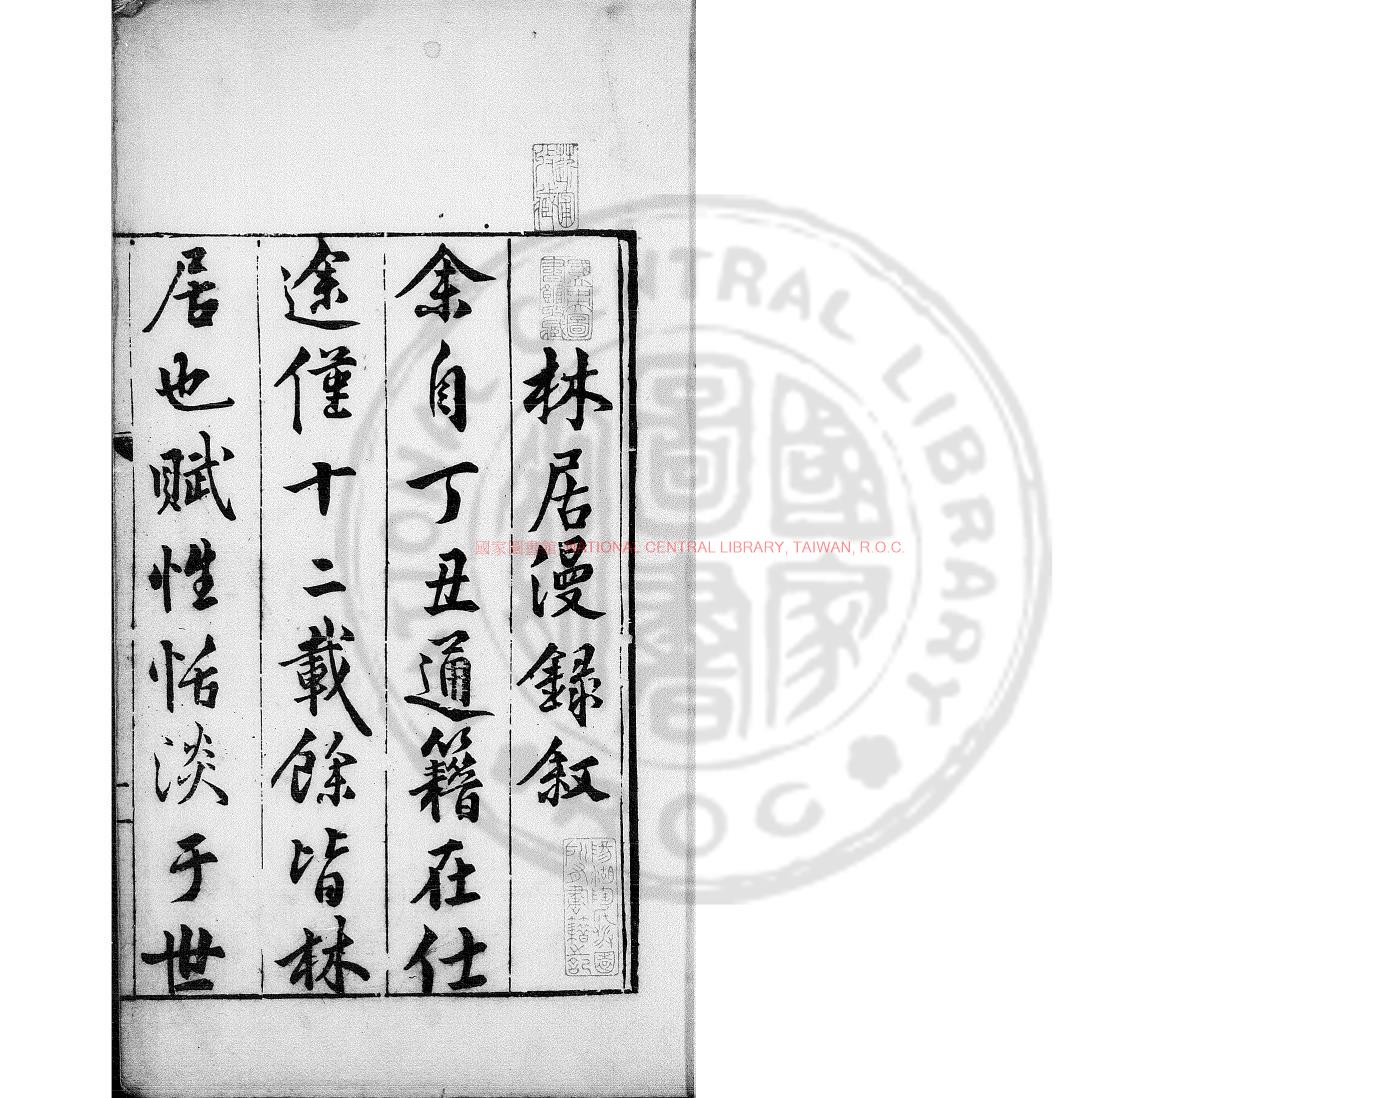 林居漫録叙
余自丁丑通籍在仕
途僅十二載餘皆林
居也賦性恬淡于世
國家圖書館 NATIONAL CENTRAL LIBRARY, TAIWAN, R.O.C.
NATIONAL CENTRAL LIBRARY
ROC
國家圖書